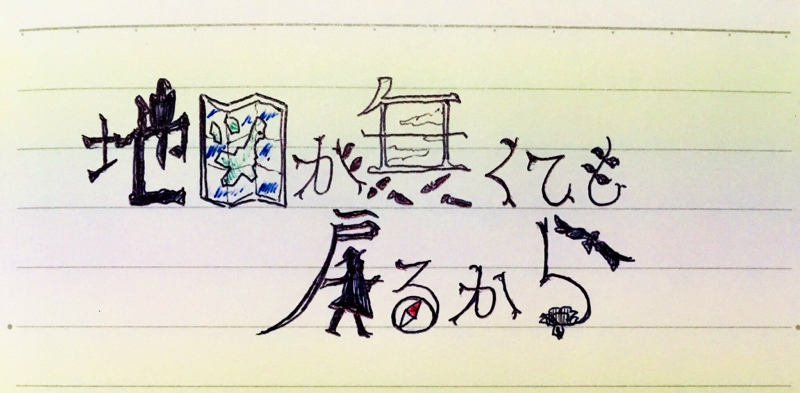 地図が無くても
戻るから